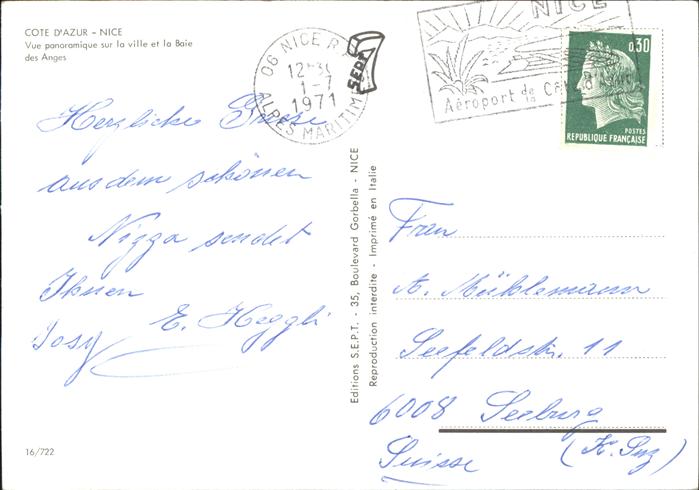 COTE D'AZUR - NICE
Vue panoramique sur la ville et la Baie
des Anges
06 NICE R
12H30
1-7
1971
ALPES MARITIMES
SEPT 7
NICE
Aéroport de la Côte d'Azur
0,30
POSTES
REPUBLIQUE FRANÇAISE
Herzliche Grüsse
aus dem schönen
Nizza sendet
Ihnen
E. Heggli
Josy
Editions S.E.P.T. - 35, Boulevard Gorbella - NICE
Reproduction interdite - Imprimé en Italie
Frau
A. Mühlemann
Seefeldstr. 11
6008 Seeburg
(K. Luz)
Suisse
16/722